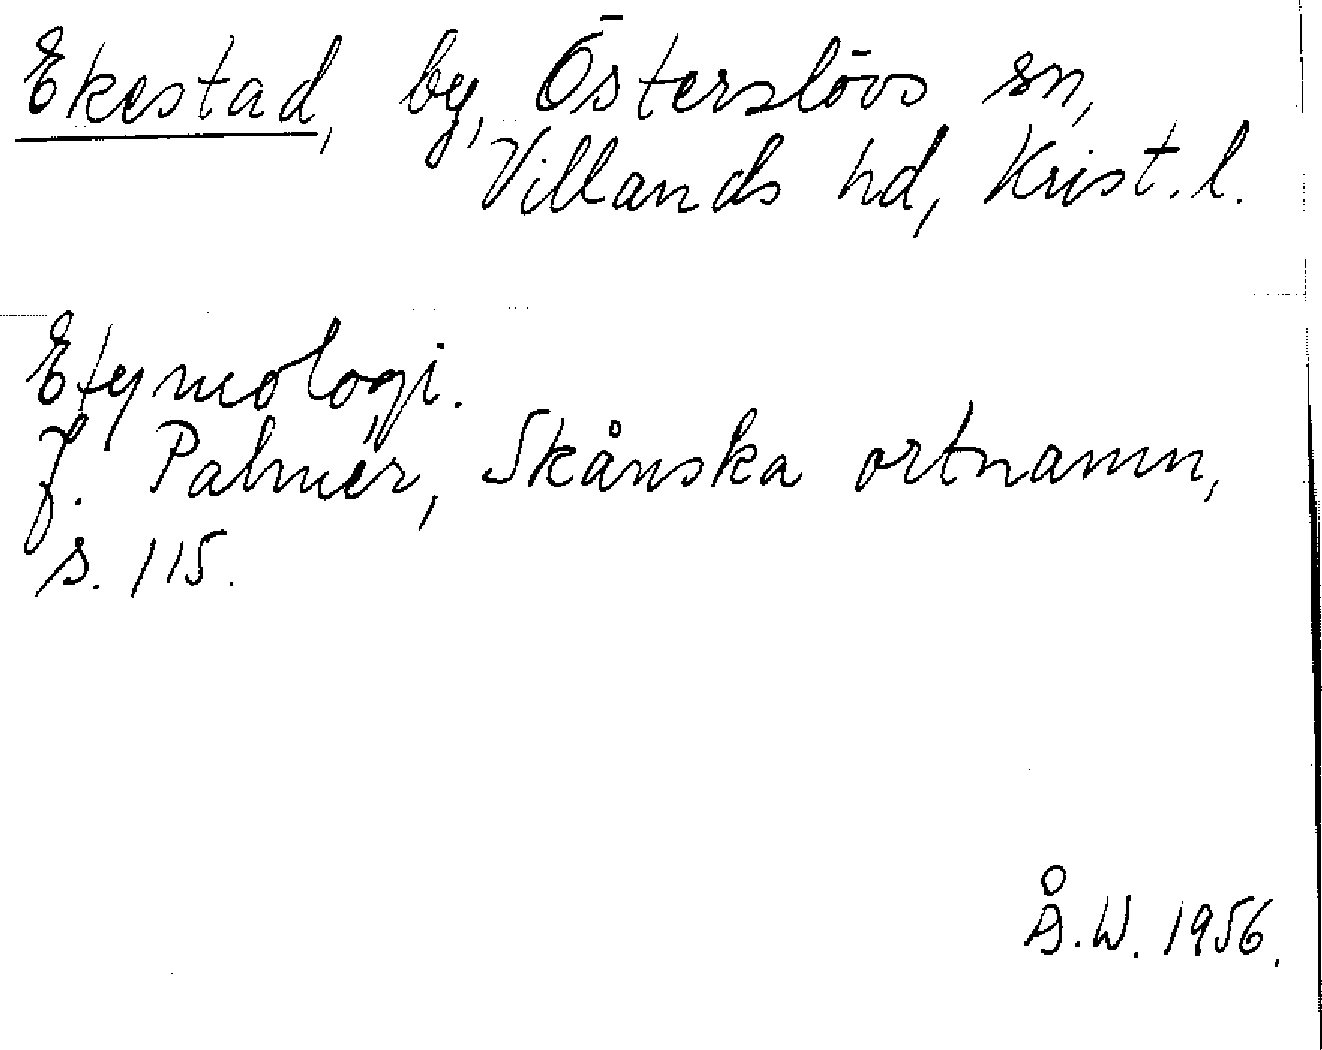 Ekestad, by, Österslövs sn,
Villands hd, Krist. l.
Etymologi.
J. Palmér, Skånska ortnamn,
s. 115.
Å.W. 1956.